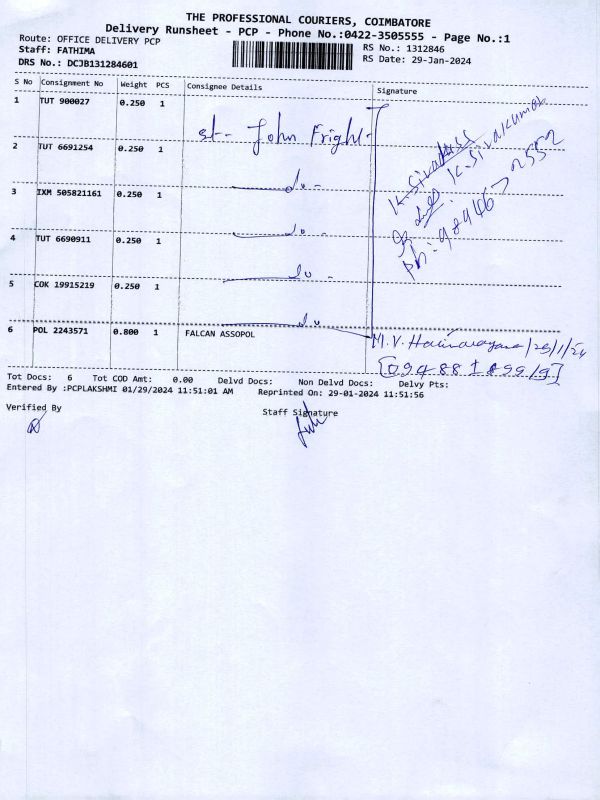 THE PROFESSIONAL COURIERS, COIMBATORE
Delivery Runsheet - PCP - Phone No.:0422-3505555 - Page No.:1
Route: OFFICE DELIVERY PCP
RS No.: 1312846
Staff: FATHIMA
RS Date: 29-Jan-2024
DRS No.: DCJB131284601
S No Consignment No Weight PCS Consignee Details Signature
1 TUT 900027 0.250 1 st-- John Fright-
2 TUT 6691254 0.250 1 do -
3 IXM 505821161 0.250 1 do -
4 TUT 6690911 0.250 1 do -
5 COK 19915219 0.250 1 do
K. Sivakumar
6 POL 2243571 0.800 1 FALCAN ASSOPOL
Tot Docs: 6 Tot COD Amt: 0.00 Delvd Docs: Non Delvd Docs: Delvy Pts:
Entered By :PCPLAKSHMI 01/29/2024 11:51:01 AM Reprinted On: 29-01-2024 11:51:56
Verified By
Staff Signature